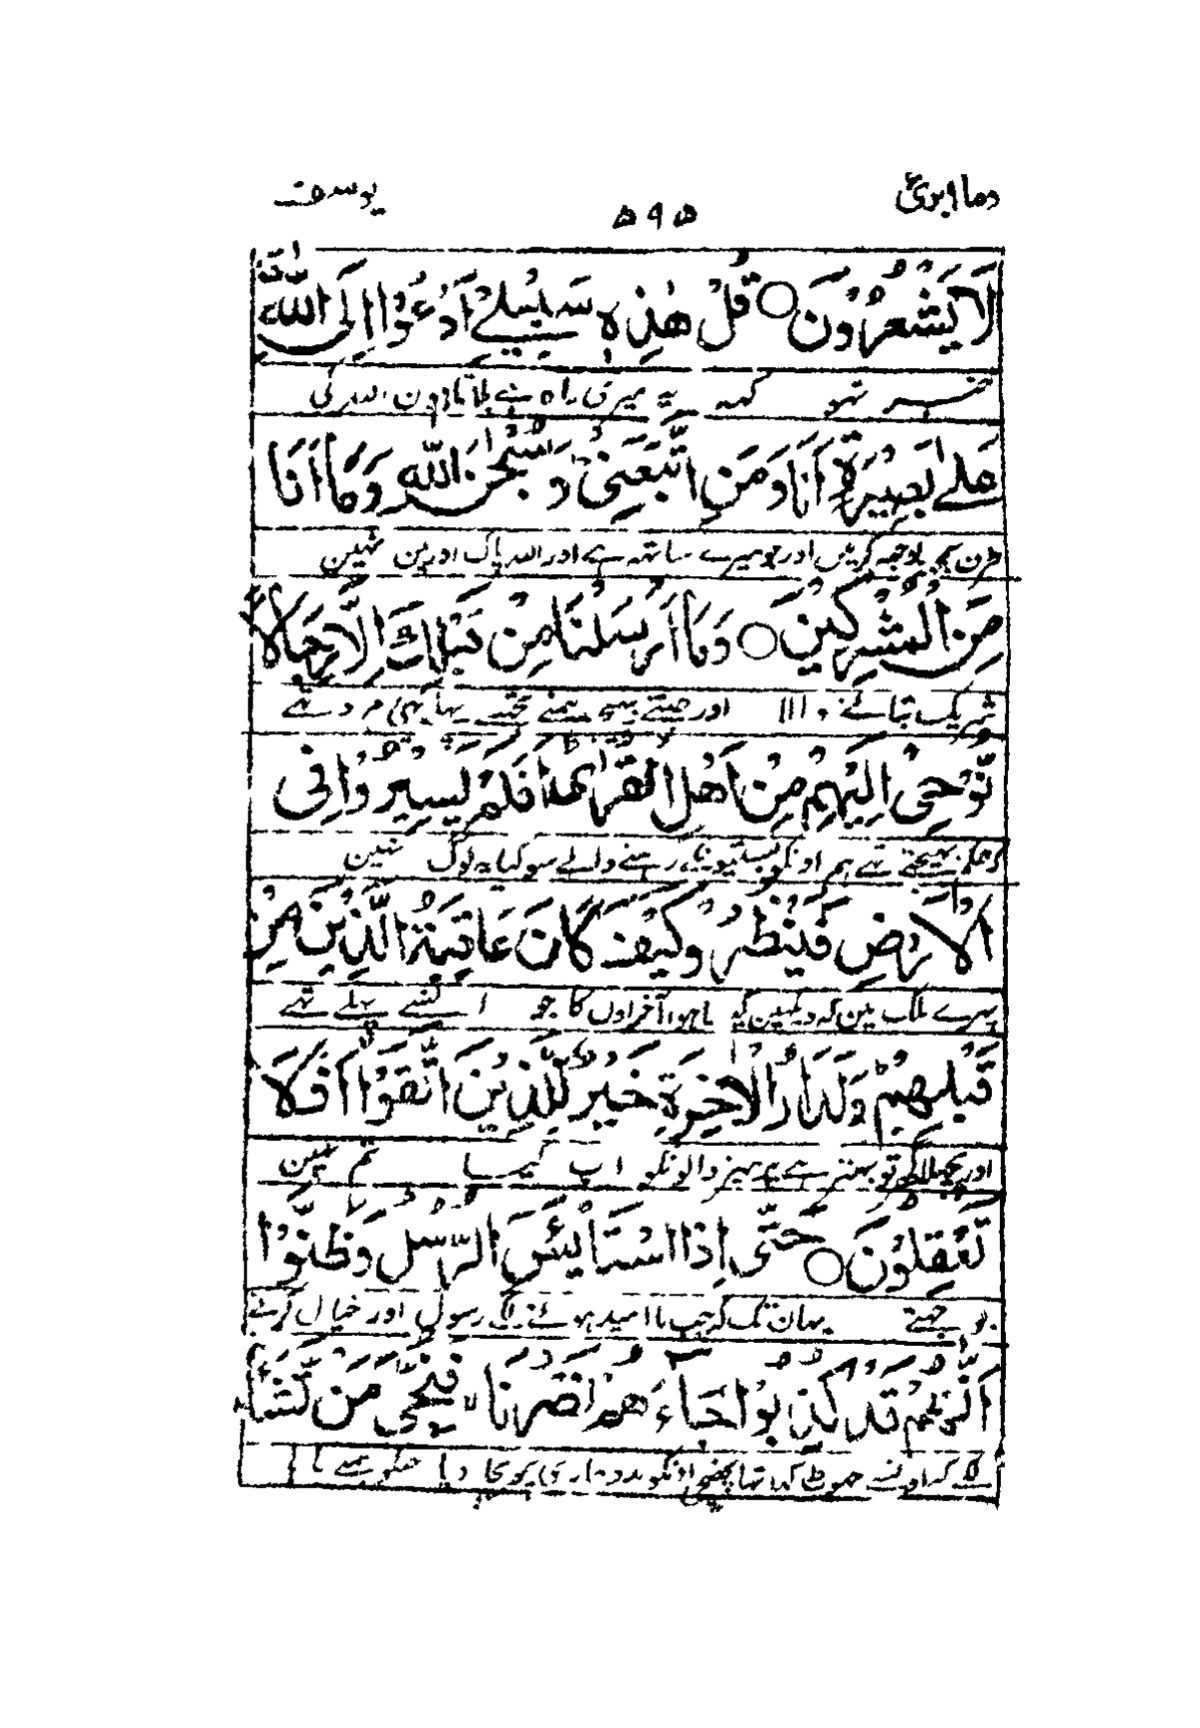 وما ابرئ ۵۹۵ یوسف
لَا يَشْعُرُوْنَ ○ قُلْ هٰذِهٖ سَبِيْلِيْ اَدْعُوْا اِلَى اللّٰهِ
خبر نہو کہہ یہ میری راہ ہے بلاتا ہون اللہ کی
عَلٰى بَصِيْرَةٍ اَنَا وَمَنِ اتَّبَعَنِيْ وَسُبْحٰنَ اللّٰهِ وَمَا اَنَا
طرف سمجھ بوجھہ کر مین اور جو میرے ساتھہ ہے اور اللہ پاک اور مین نہین
مِنَ الْمُشْرِكِيْنَ ○ وَمَا اَرْسَلْنَا مِنْ قَبْلِكَ اِلَّا رِجَالًا
شریک بتانے والا اور جتنے بھیجے ہمنے تجھسے پہلے یہی مرد تھے
نُّوْحِيْ اِلَيْهِمْ مِنْ اَهْلِ الْقُرٰى اَفَلَمْ يَسِيْرُوْا فِى
کہ حکم بھیجتے تھے ہم اونکو بستیونکے رہنے والے سو کیا یہ لوگ نہین
الْاَرْضِ فَيَنْظُرُوْا كَيْفَ كَانَ عَاقِبَةُ الَّذِيْنَ مِنْ
پھرے ملک مین کہ دیکھین کیسا ہوا آخر اونکا جو انسے پہلے تھے
قَبْلِهِمْ وَلَدَارُ الْاٰخِرَةِ خَيْرٌ لِّلَّذِيْنَ اتَّقَوْا اَفَلَا
اور پچھلا گھر تو بہتر ہے پرہیز والونکو اب کیا تم نہین
تَعْقِلُوْنَ ○ حَتّٰى اِذَا اسْتَايْئَسَ الرُّسُلُ وَظَنُّوْا
بوجھتے یہان تک کہ جب نا امید ہونے لگے رسول اور خیال کرنے
اَنَّهُمْ قَدْ كُذِبُوْا جَاءَهُمْ نَصْرُنَا فَنُجِّيَ مَنْ نَّشَاءُ
لگے کہ اونسے جھوٹ کہا تھا پہنچی اونکو مدد ہماری پھر بچا دیا جنکو ہمنے چاہا